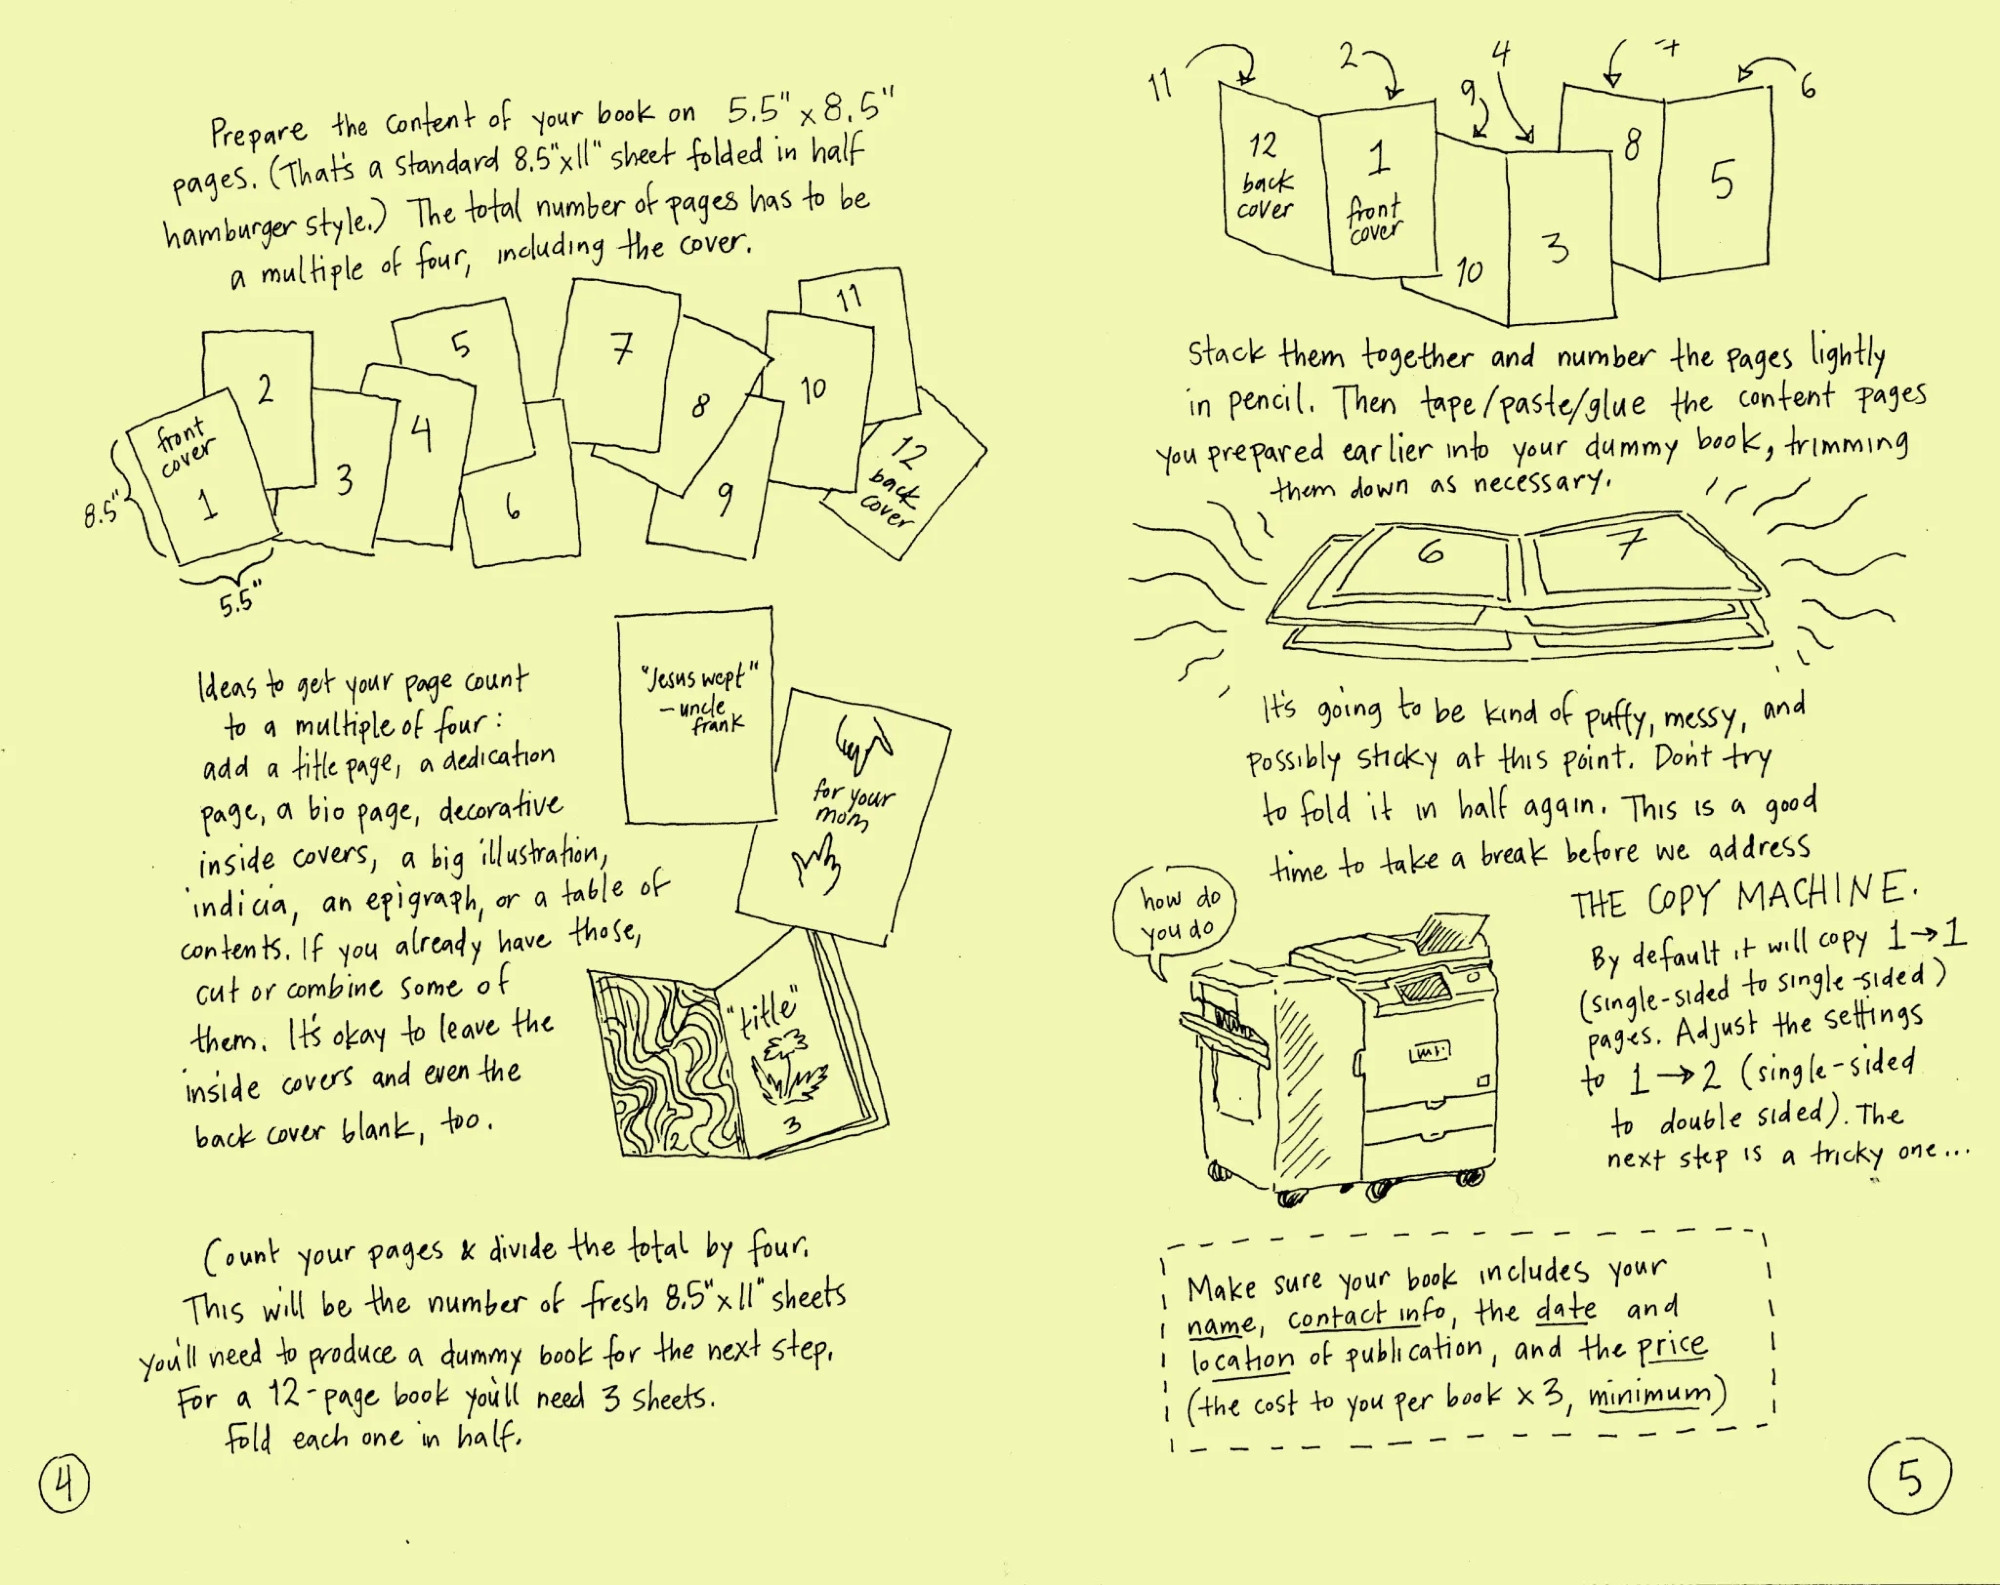 Prepare the content of your book on 5.5" x 8.5"
pages. (That's a standard 8.5"x11" sheet folded in half
hamburger style.) The total number of pages has to be
a multiple of four, including the cover.
front
cover
1
2
3
4
5
6
7
8
9
10
11
12
back
cover
8.5"
5.5"
Ideas to get your page count
to a multiple of four:
add a title page, a dedication
page, a bio page, decorative
inside covers, a big illustration,
indicia, an epigraph, or a table of
contents. If you already have those,
cut or combine some of
them. It's okay to leave the
inside covers and even the
back cover blank, too.
"Jesus wept"
- uncle
frank
for your
mom
"title"
2
3
Count your pages & divide the total by four.
This will be the number of fresh 8.5"x11" sheets
you'll need to produce a dummy book for the next step.
For a 12-page book you'll need 3 sheets.
Fold each one in half.
4
11
2
4
9
7
6
12
back
cover
1
front
cover
10
3
8
5
Stack them together and number the pages lightly
in pencil. Then tape/paste/glue the content pages
you prepared earlier into your dummy book, trimming
them down as necessary.
6
7
It's going to be kind of puffy, messy, and
possibly sticky at this point. Don't try
to fold it in half again. This is a good
time to take a break before we address
THE COPY MACHINE.
how do
you do
By default it will copy 1→1
(single-sided to single-sided)
pages. Adjust the settings
to 1→2 (single-sided
to double sided). The
next step is a tricky one...
Make sure your book includes your
name, contact info, the date and
location of publication, and the price
(the cost to you per book x 3, minimum)
5